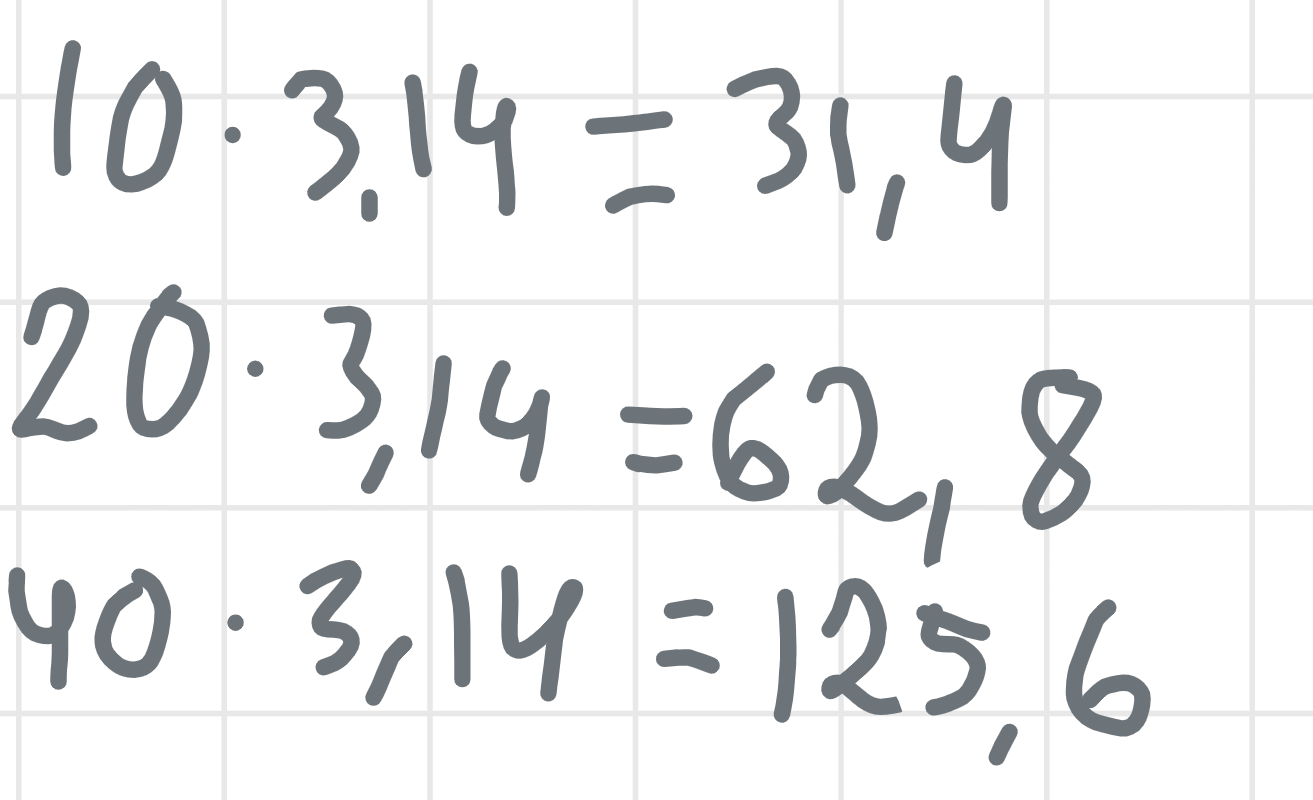 10 · 3,14 = 31,4
20 · 3,14 = 62,8
40 · 3,14 = 125,6